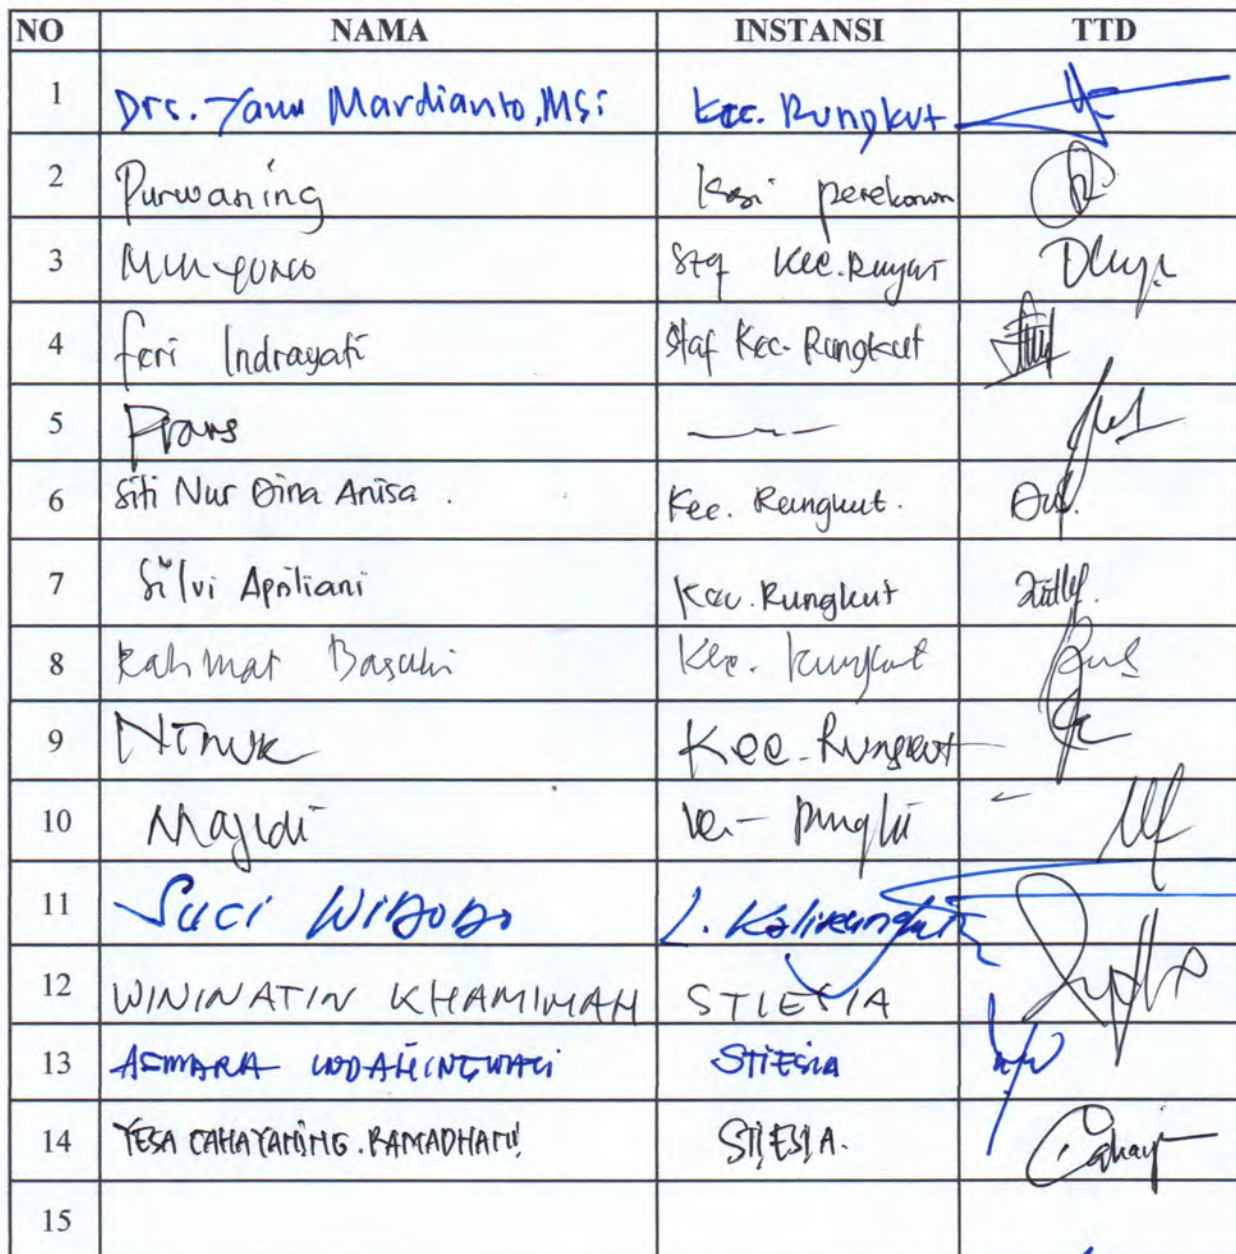 NO NAMA INSTANSI TTD
1 Drs. Yanu Mardianto, MSi Kec. Rungkut
2 Purwaning Kasi perekonom
3 Kec.
4 feri Indrayati Staf Kec. Rungkut
5 Prans
6 Siti Nur Dina Anisa. Kec. Rungkut.
7 Silvi Apriliani Kec. Rungkut
8 Rahmat Basuki Kec. Rungkut
9 Ninuk Kec. Rungkut
10 Majidi
11 Suci Wibobo L. Kalirungkut
12 WININATIN KHAMIMAH STIESIA
13 ASMARA STIESIA
14 YESA CAHAYANING. RAMADHANI STIESIA. Cahay
15